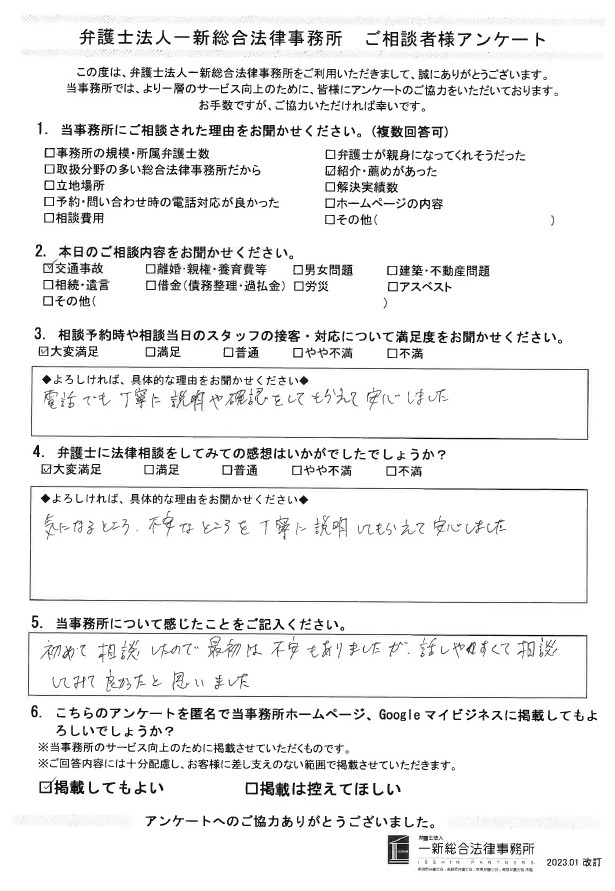 弁護士法人一新総合法律事務所　ご相談者様アンケート
この度は、弁護士法人一新総合法律事務所をご利用いただきまして、誠にありがとうございます。
当事務所では、より一層のサービス向上のために、皆様にアンケートのご協力をいただいております。
お手数ですが、ご協力いただければ幸いです。
1. 当事務所にご相談された理由をお聞かせください。(複数回答可)
□事務所の規模・所属弁護士数　□弁護士が親身になってくれそうだった
□取扱分野の多い総合法律事務所だから　☑紹介・薦めがあった
□立地場所　□解決実績数
□予約・問い合わせ時の電話対応が良かった　□ホームページの内容
□相談費用　□その他(　)
2. 本日のご相談内容をお聞かせください。
☑交通事故　□離婚・親権・養育費等　□男女問題　□建築・不動産問題
□相続・遺言　□借金(債務整理・過払金)　□労災　□アスベスト
□その他(　)
3. 相談予約時や相談当日のスタッフの接客・対応について満足度をお聞かせください。
☑大変満足　□満足　□普通　□やや不満　□不満
◆よろしければ、具体的な理由をお聞かせください◆
電話でも丁寧に説明や確認をしてもらえて安心しました
4. 弁護士に法律相談をしてみての感想はいかがでしたでしょうか？
☑大変満足　□満足　□普通　□やや不満　□不満
◆よろしければ、具体的な理由をお聞かせください◆
気になるところ、不安なところを丁寧に説明してもらえて安心しました
5. 当事務所について感じたことをご記入ください。
初めて相談したので最初は不安もありましたが、話しやすくて相談
してみて良かったと思いました
6. こちらのアンケートを匿名で当事務所ホームページ、Googleマイビジネスに掲載してもよ
ろしいでしょうか？
※当事務所のサービス向上のために掲載させていただくものです。
※ご回答内容には十分配慮し、お客様に差し支えのない範囲で掲載させていただきます。
☑掲載してもよい　□掲載は控えてほしい
アンケートへのご協力ありがとうございました。
弁護士法人
一新総合法律事務所
ISSHIN PARTNERS
2023.01 改訂